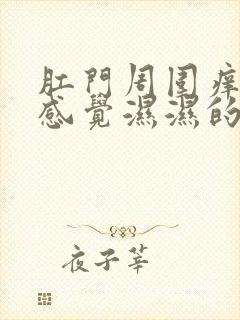 肛門周圍痒
感覺濕濕的
夜子莘